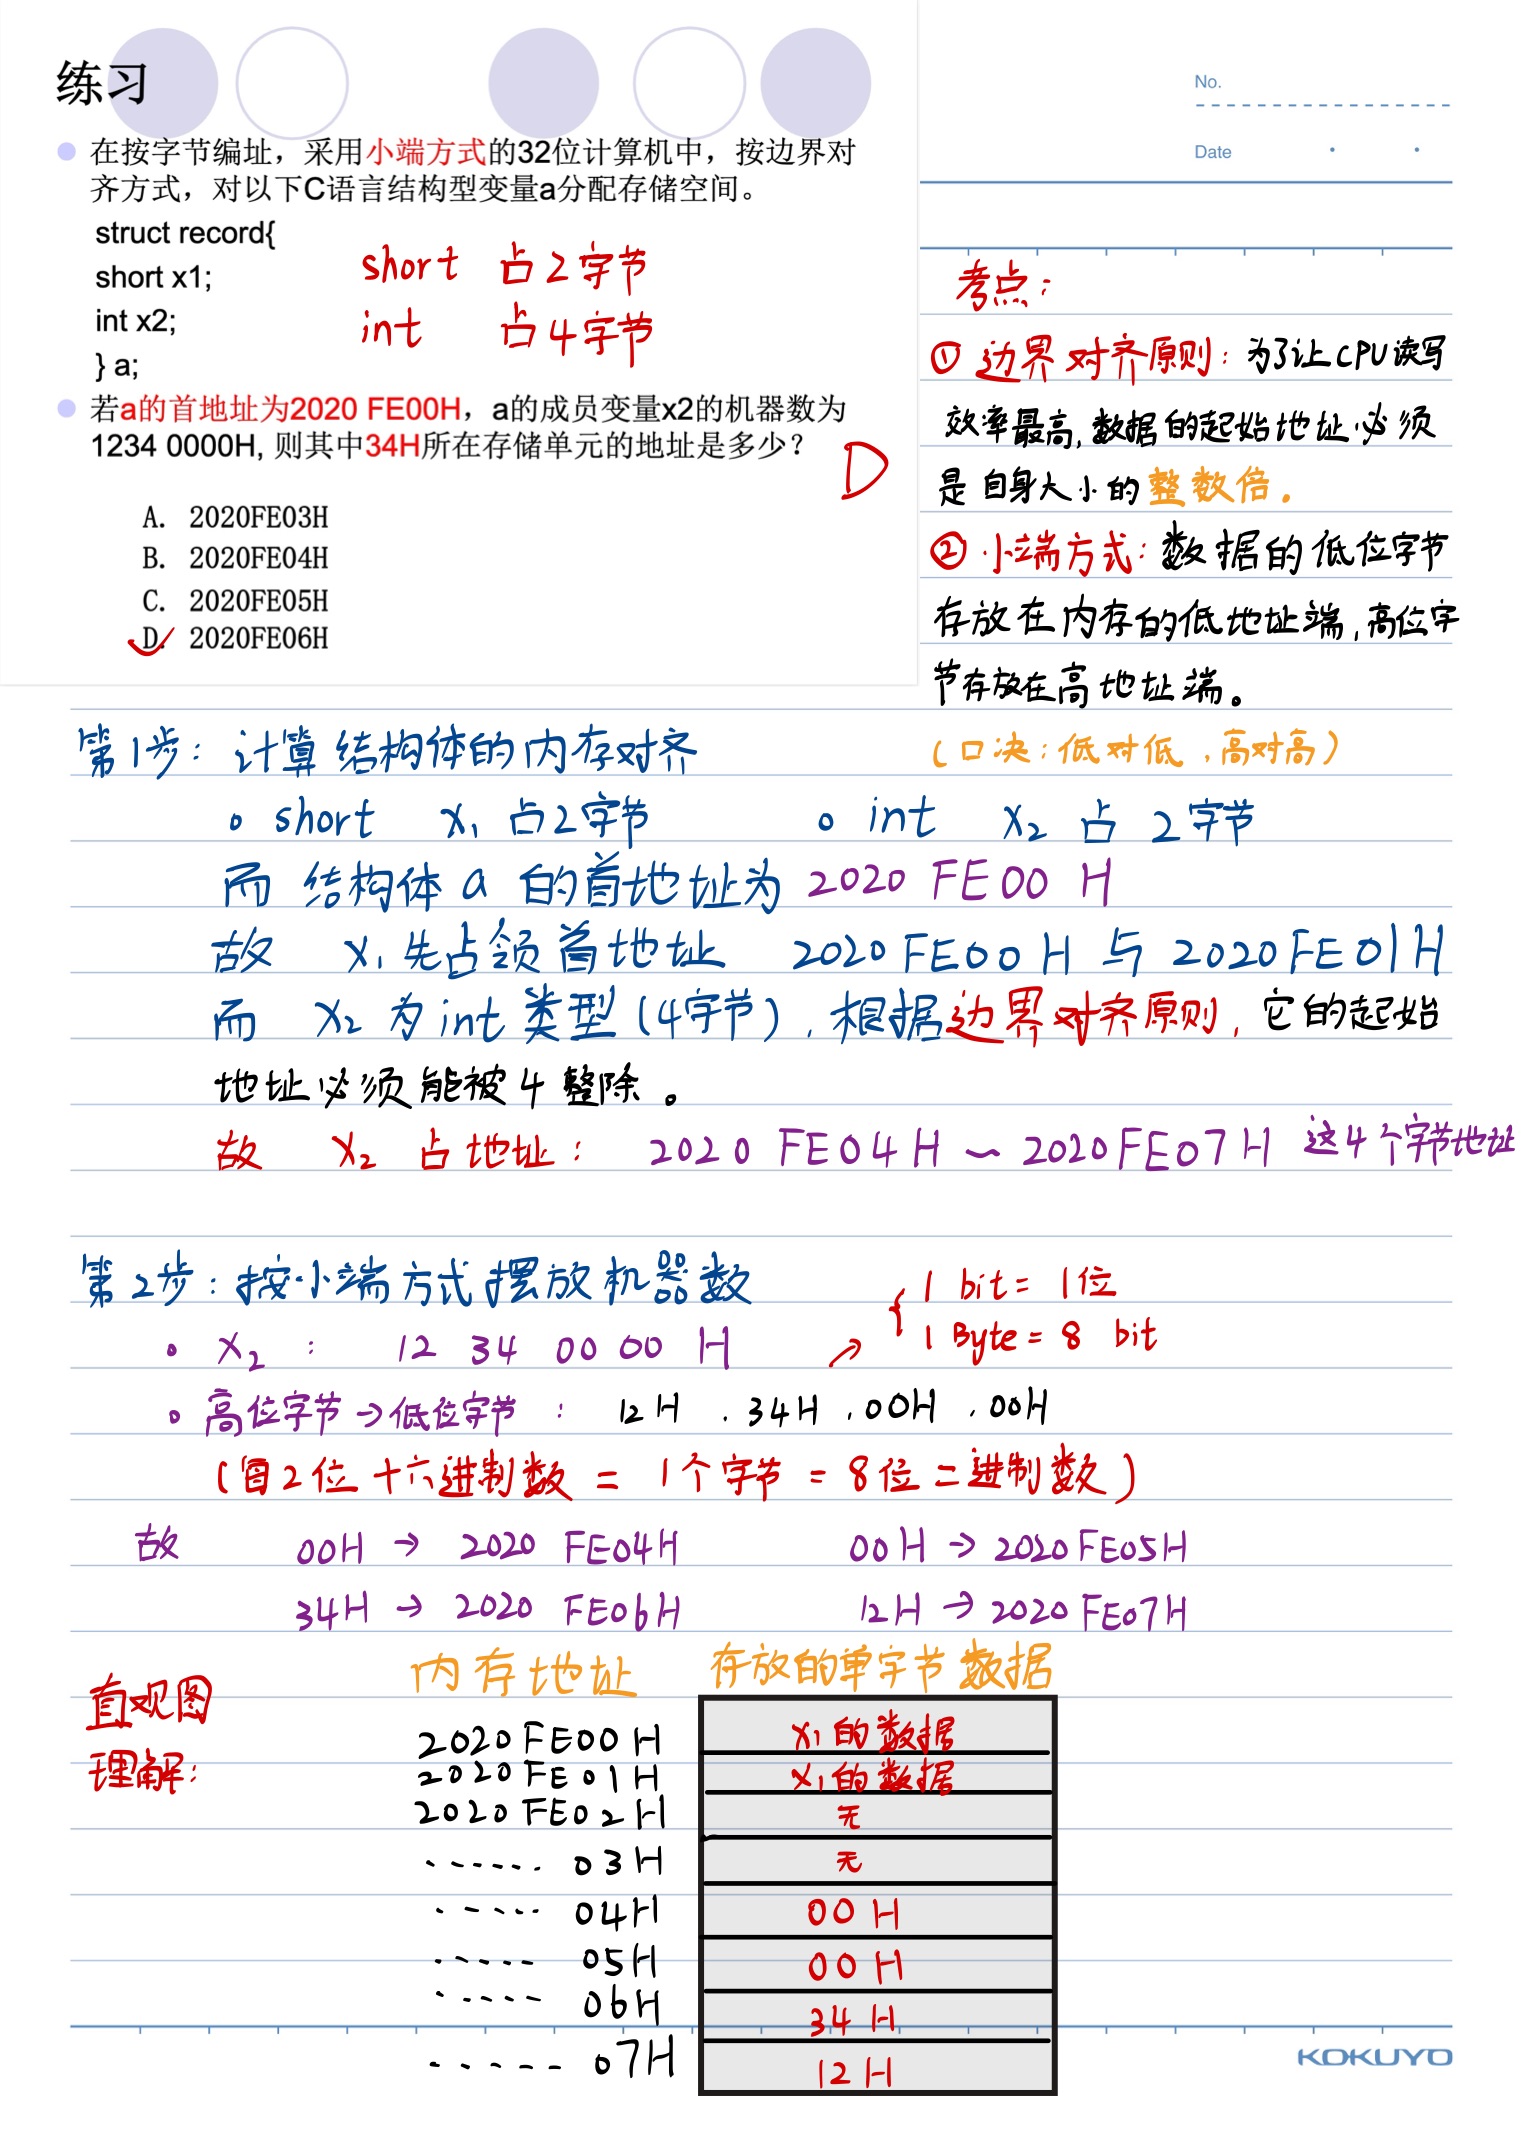 练习
No.
Date
在按字节编址，采用小端方式的32位计算机中，按边界对
齐方式，对以下C语言结构型变量a分配存储空间。
struct record{
short x1;
int x2;
} a;
short 占2字节
int 占4字节
若a的首地址为2020 FE00H，a的成员变量x2的机器数为
1234 0000H, 则其中34H所在存储单元的地址是多少？
D
A. 2020FE03H
B. 2020FE04H
C. 2020FE05H
D. 2020FE06H
考点：
① 边界对齐原则：为了让CPU读写
效率最高，数据的起始地址必须
是自身大小的整数倍。
② 小端方式：数据的低位字节
存放在内存的低地址端，高位字
节存放在高地址端。
（口决：低对低，高对高）
第1步：计算结构体的内存对齐
short x₁ 占2字节 int x₂ 占 2字节
而 结构体 a 的首地址为 2020 FE00 H
故 x₁先占领首地址 2020FE00H 与 2020FE01H
而 x₂ 为int类型(4字节)，根据边界对齐原则，它的起始
地址必须能被4整除。
故 x₂ 占地址： 2020 FE04H ~ 2020FE07H 这4个字节地址
第2步：按小端方式摆放机器数
1 bit = 1位
1 Byte = 8 bit
x₂ : 12 34 00 00 H
高位字节→低位字节 : 12H . 34H . 00H . 00H
(2位十六进制数 = 1个字节 = 8位二进制数)
故 00H → 2020 FE04H 00H → 2020FE05H
34H → 2020 FE06H 12H → 2020FE07H
直观图
理解：
内存地址 存放的单字节数据
2020FE00H x₁的数据
2020FE01H x₁的数据
2020FE02H 无
...... 03H 无
..... 04H 00H
..... 05H 00H
..... 06H 34H
..... 07H 12H
KOKUYO